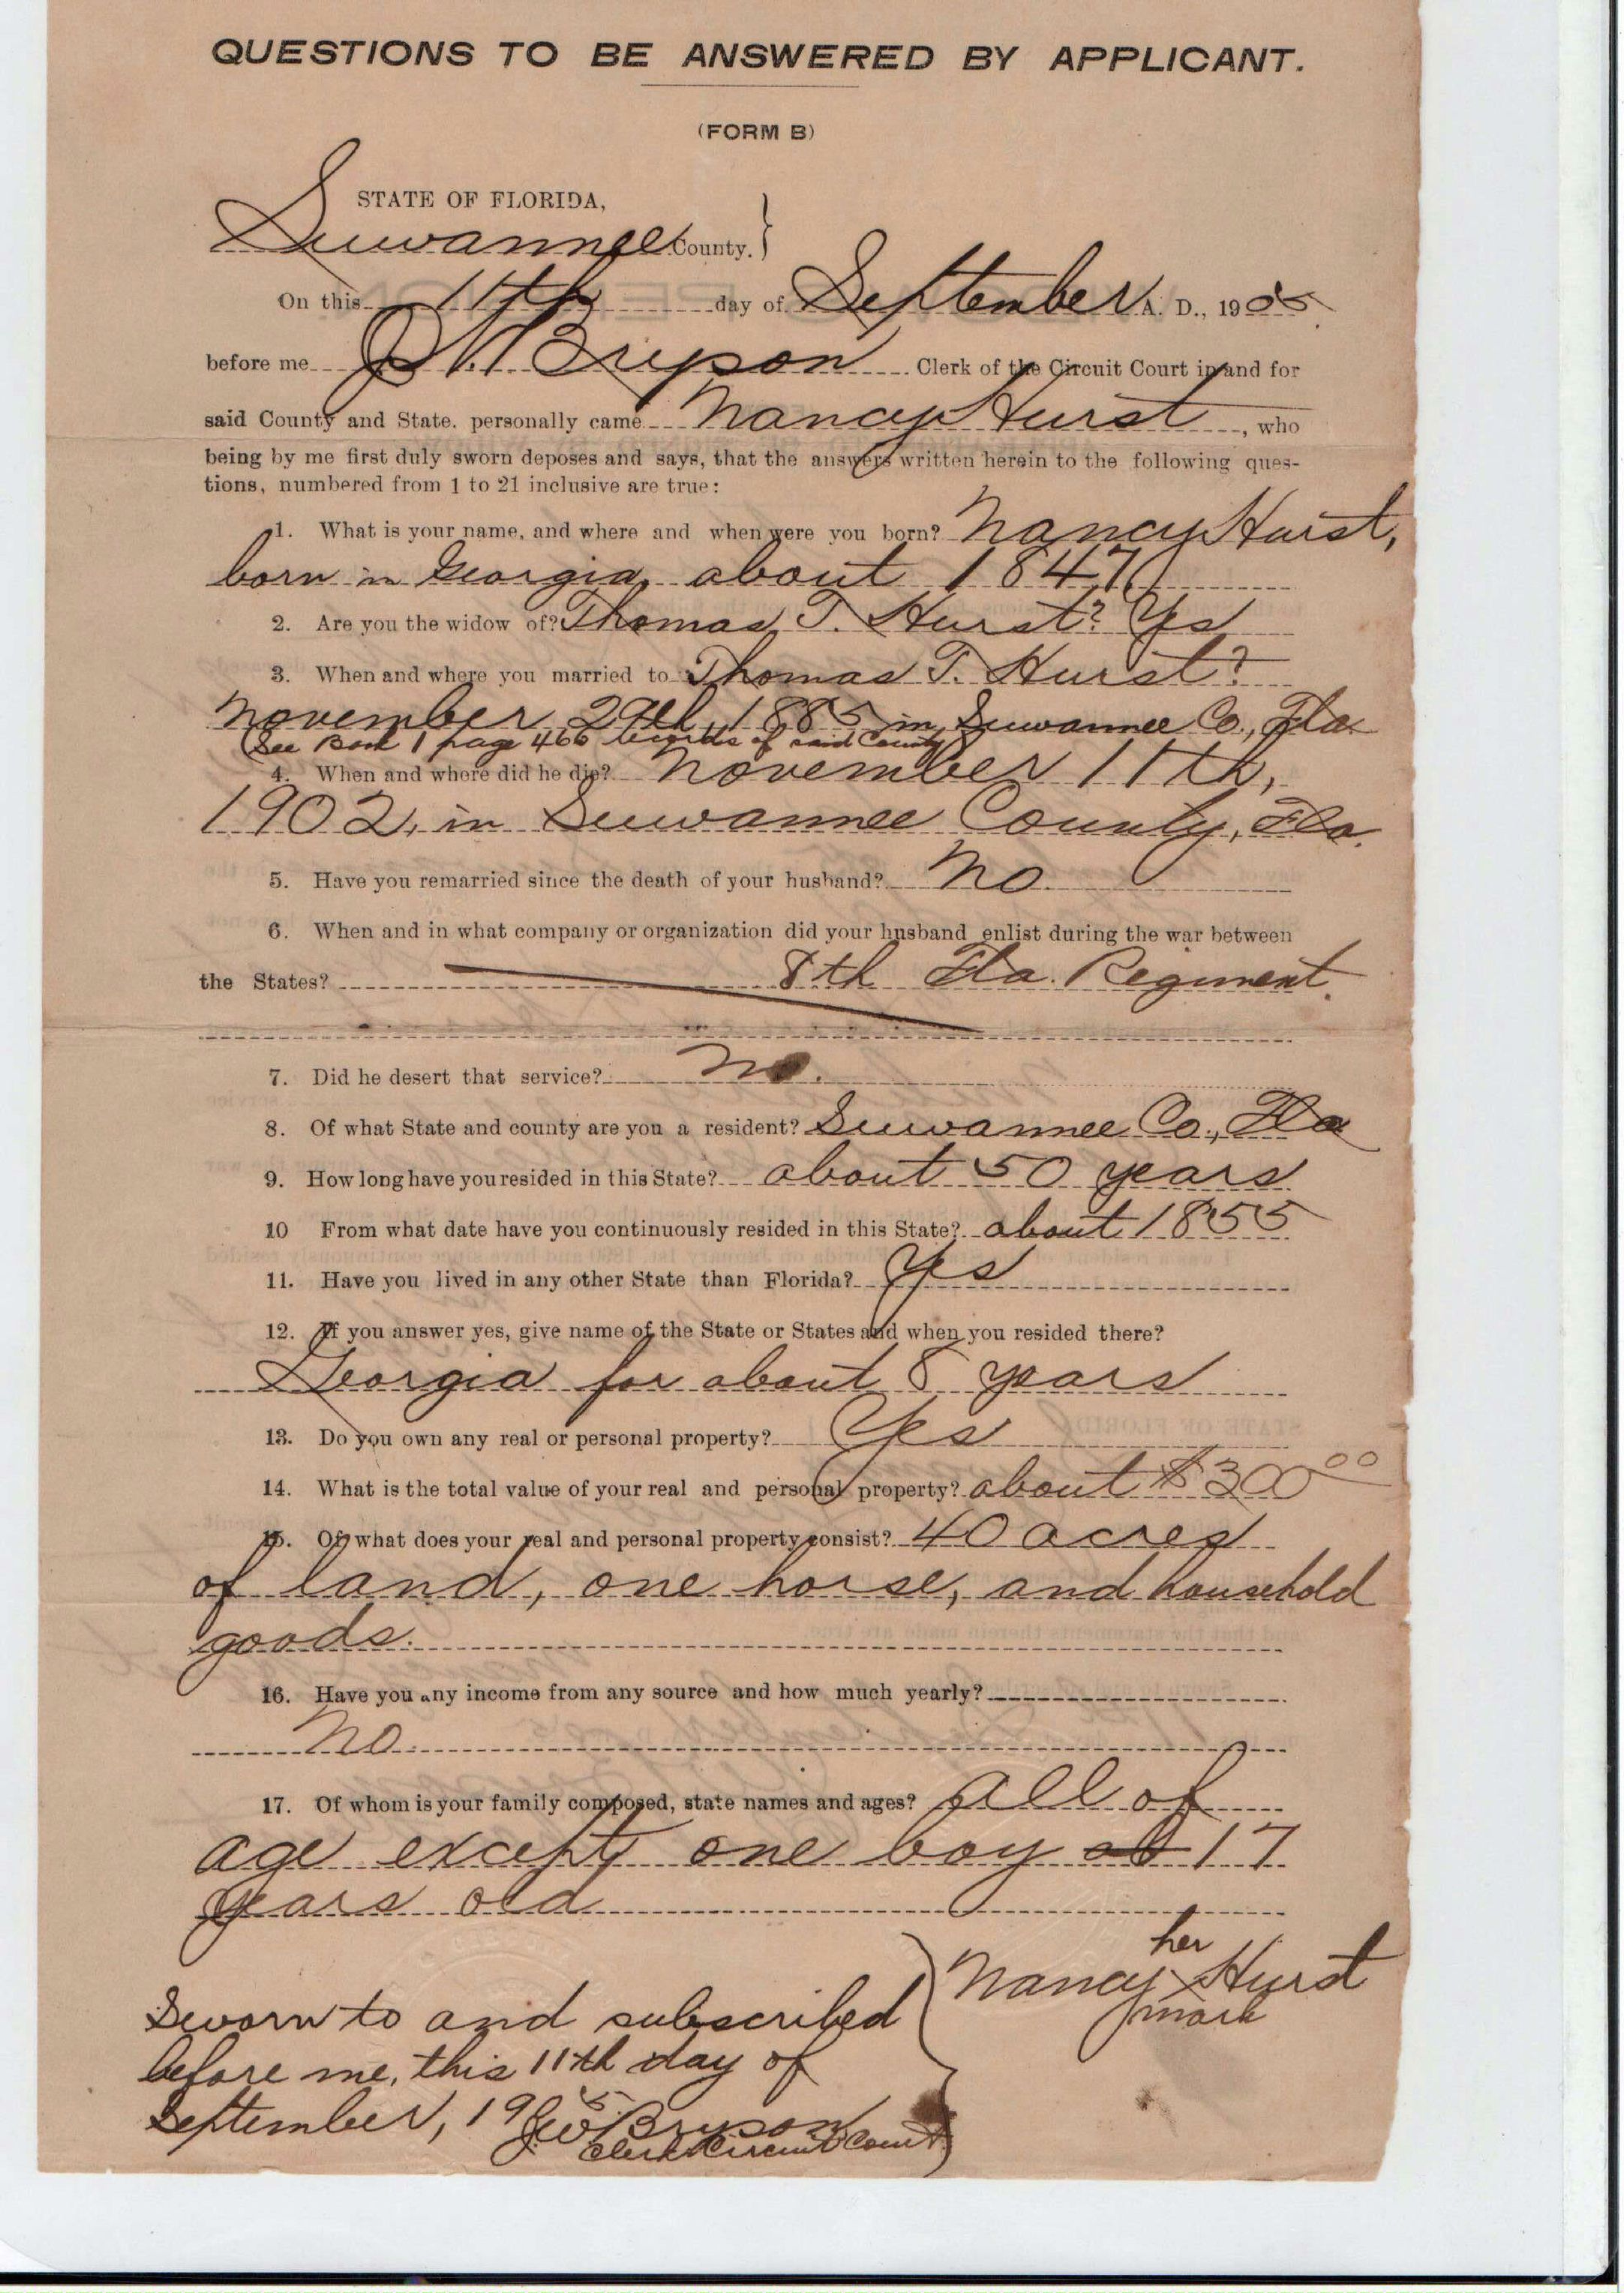 QUESTIONS TO BE ANSWERED BY APPLICANT.
(FORM B)
STATE OF FLORIDA,
Suwannee County. }
On this 11th day of September A. D., 1905
before me J W Bryson Clerk of the Circuit Court in and for
said County and State. personally came Nancy Hurst, who
being by me first duly sworn deposes and says, that the answers written herein to the following ques-
tions, numbered from 1 to 21 inclusive are true:
1. What is your name, and where and when were you born? Nancy Hurst,
born in Georgia, about 1847.
2. Are you the widow of? Thomas T. Hurst? Yes
3. When and where you married to Thomas T. Hurst?
November 29th, 1885 in Suwannee Co., Fla.
(See Book 1 page 466 records of said County)
4. When and where did he die? November 11th,
1902, in Suwannee County, Fla.
5. Have you remarried since the death of your husband? No.
6. When and in what company or organization did your husband enlist during the war between
the States? 8th Fla. Regiment.
7. Did he desert that service? No.
8. Of what State and county are you a resident? Suwannee Co., Fla
9. How long have you resided in this State? about 50 years
10 From what date have you continuously resided in this State? about 1855
11. Have you lived in any other State than Florida? Yes
12. If you answer yes, give name of the State or States and when you resided there?
Georgia for about 8 years
13. Do you own any real or personal property? Yes
14. What is the total value of your real and personal property? about $300.00
15. Of what does your real and personal property consist? 40 acres
of land, one horse, and household
goods.
16. Have you any income from any source and how much yearly?
No.
17. Of whom is your family composed, state names and ages? all of
age except one boy 17
years old
her
Nancy X Hurst
mark
Sworn to and subscribed
before me, this 11th day of
September, 1905
J W Bryson
Clerk Circuit Court